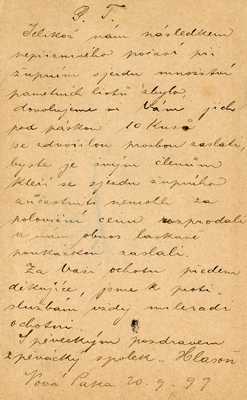 P. T.
Jelikož nám následkem
nepříznivého počasí při
župním sjezdu množství
pamětních listů zbylo,
dovolujeme si Vám jich
pod páskou 10 kusů
se zdvořilou prosbou zaslati,
byste je svým členům
kteří se sjezdu župního
súčastniti nemohli za
poloviční cenu rozprodali
a nám obnos laskavě
poukázkou zaslali.
Za Vaši ochotu předem
děkujíce, jsme k proti-
službám vždy milerádi
ochotni.
S pěveckým pozdravem
zpěvácký spolek „Hlasoň
Nová Paka 20. 9. 97